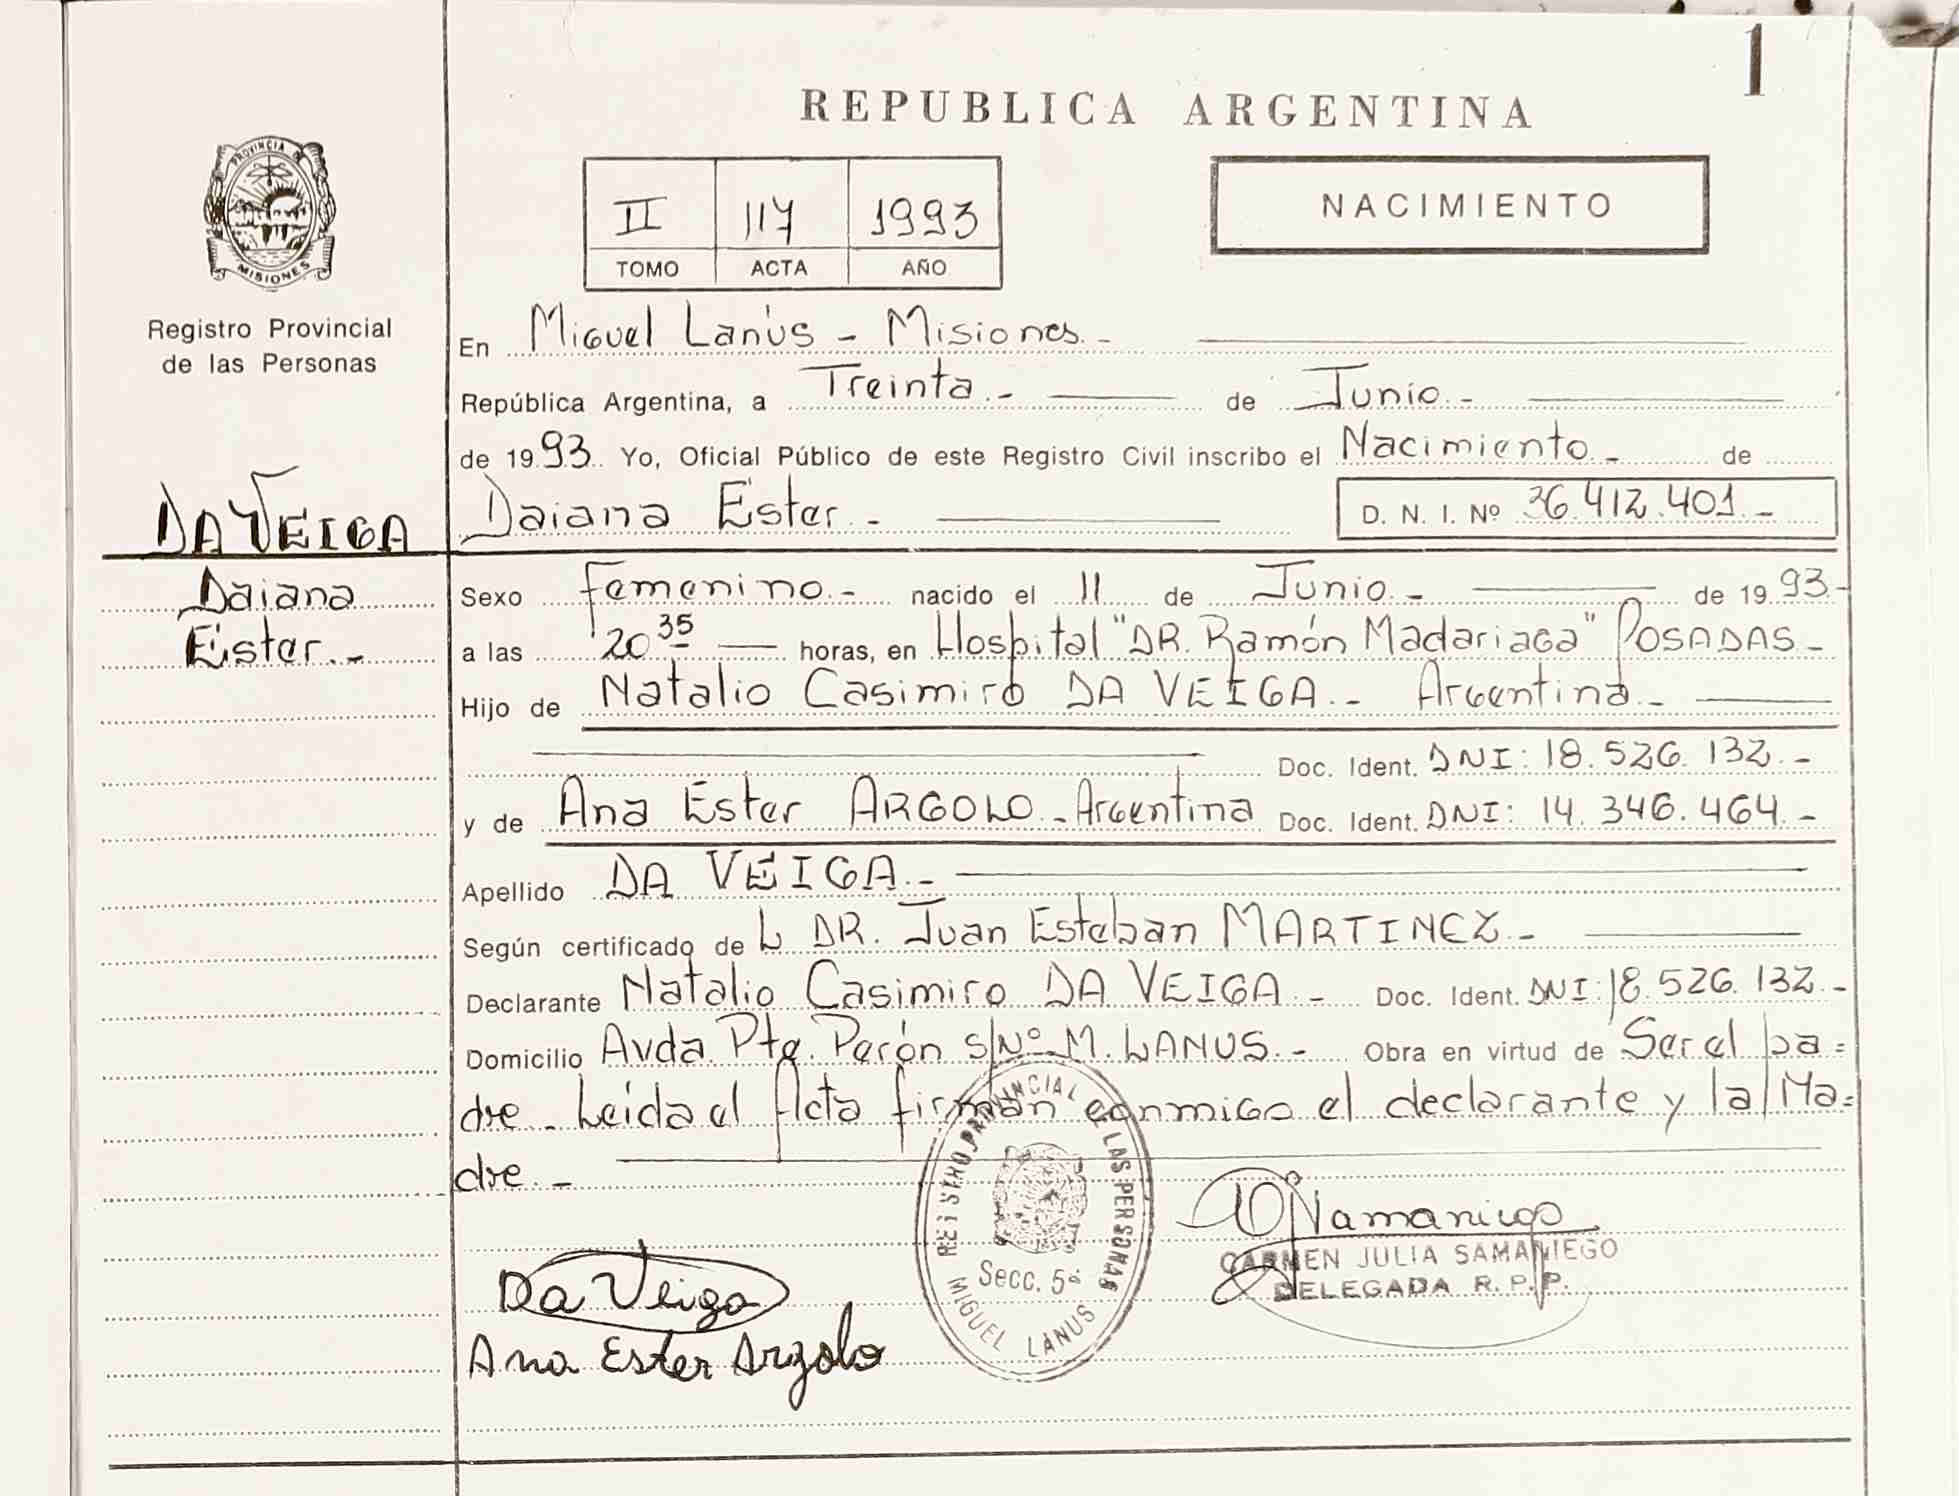 1
REPUBLICA ARGENTINA
PROVINCIA DE
MISIONES
Registro Provincial
de las Personas
II 117 1993
TOMO ACTA AÑO
NACIMIENTO
En Miguel Lanús - Misiones.-
República Argentina, a Treinta.- de Junio.-
de 1993. Yo, Oficial Público de este Registro Civil inscribo el Nacimiento.- de
DA VEIGA
Daiana Ester.-
D. N. I. Nº 36.412.401.-
Daiana
Ester.-
Sexo femenino.- nacido el 11 de Junio.- de 1993.-
a las 20 35 horas, en Hospital "DR. Ramón Madariaga" POSADAS.-
Hijo de Natalio Casimiro DA VEIGA.- Argentina.-
Doc. Ident. DNI: 18.526.132.-
y de Ana Ester ARGOLO.- Argentina Doc. Ident. DNI: 14.346.464.-
Apellido DA VEIGA.-
Según certificado de L DR. Juan Esteban MARTINEZ.-
Declarante Natalio Casimiro DA VEIGA.- Doc. Ident. DNI: 18.526.132.-
Domicilio Avda. Pte. Perón s/Nº M. LANUS.- Obra en virtud de Ser el pa=
dre.- Leída el Acta firman conmigo el declarante y la Ma=
dre.-
REGISTRO PROVINCIAL DE LAS PERSONAS
Secc. 5ª
MIGUEL LANUS
Samaniego
CARMEN JULIA SAMANIEGO
DELEGADA R. P. P.
Da Veiga
Ana Ester Argolo